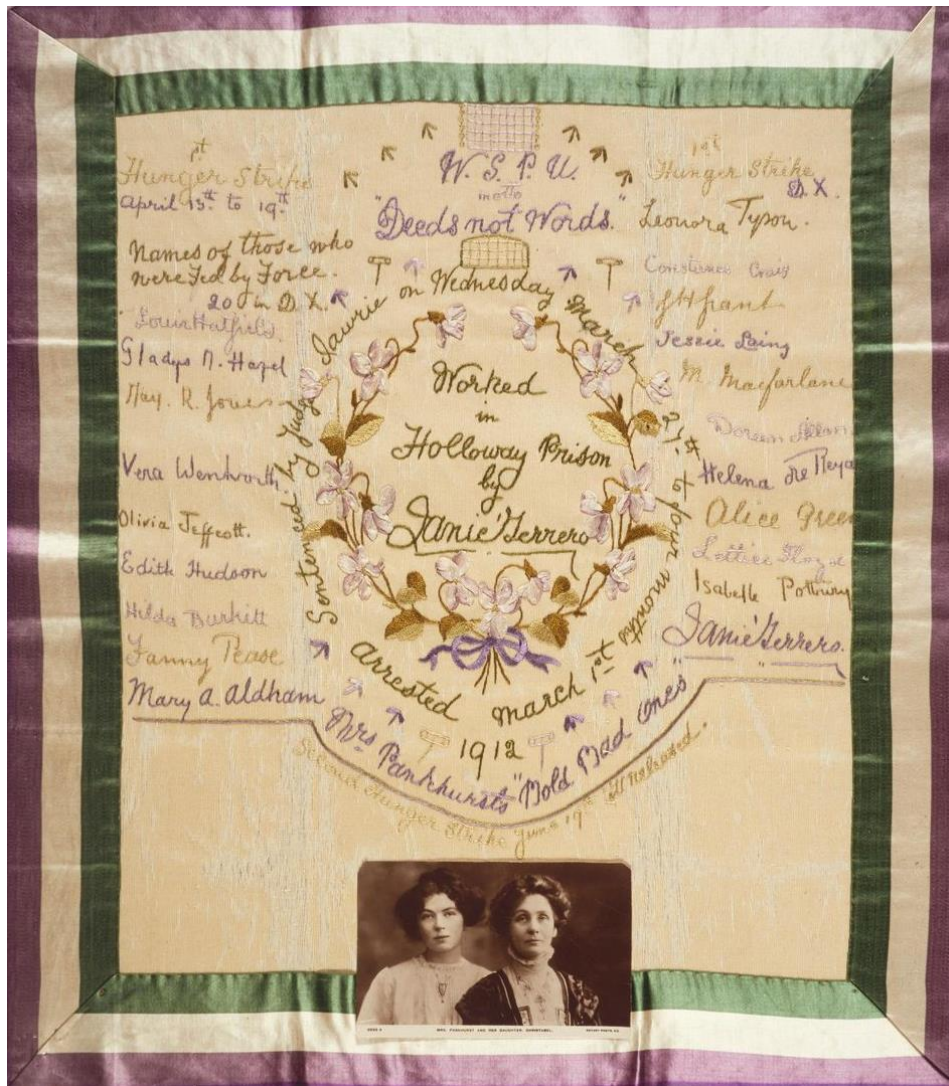 1st
Hunger Strike
April 13th to 19th
Names of those who
were Fed by Force.
20 in D.X.
Louie Hatfield.
Gladys N. Hazel
May. R. Jones
Vera Wentworth
Olivia Jeffcott.
Edith Hudson
Hilda Burkitt
Fanny Pease
Mary A. Aldham
W. S. P. U.
motto
"Deeds not Words."
Sentenced by Judge Lawrie on Wednesday March 27th to four months
Worked
in
Holloway Prison
by
Janie Terrero
Arrested March 1st
1912
Mrs Pankhursts "Bold Bad Ones"
Second Hunger Strike June 19th Released.
1st
Hunger Strike
D.X.
Leonora Tyson.
Constance Craig
Grant
Jessie Laing
M. Macfarlane
Doreen Allen
Helena de Reya
Alice Green
Lettice Floyd
Isabelle Potbury
Janie Terrero.
MRS. PANKHURST AND HER DAUGHTER CHRISTABEL.